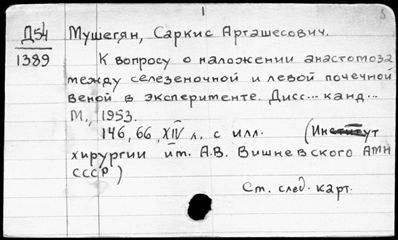 1 5
Д54 Мушегян, Саркис Арташесович.
1389 К вопросу о наложении анастомоза
между селезеночной и левой почечной
веной в эксперименте. Дисс... канд...
М., 1953.
146, 66, XIV л. с илл. (Институт
хирургии им. А.В. Вишневского АМН
СССР)
Ст. след. карт.